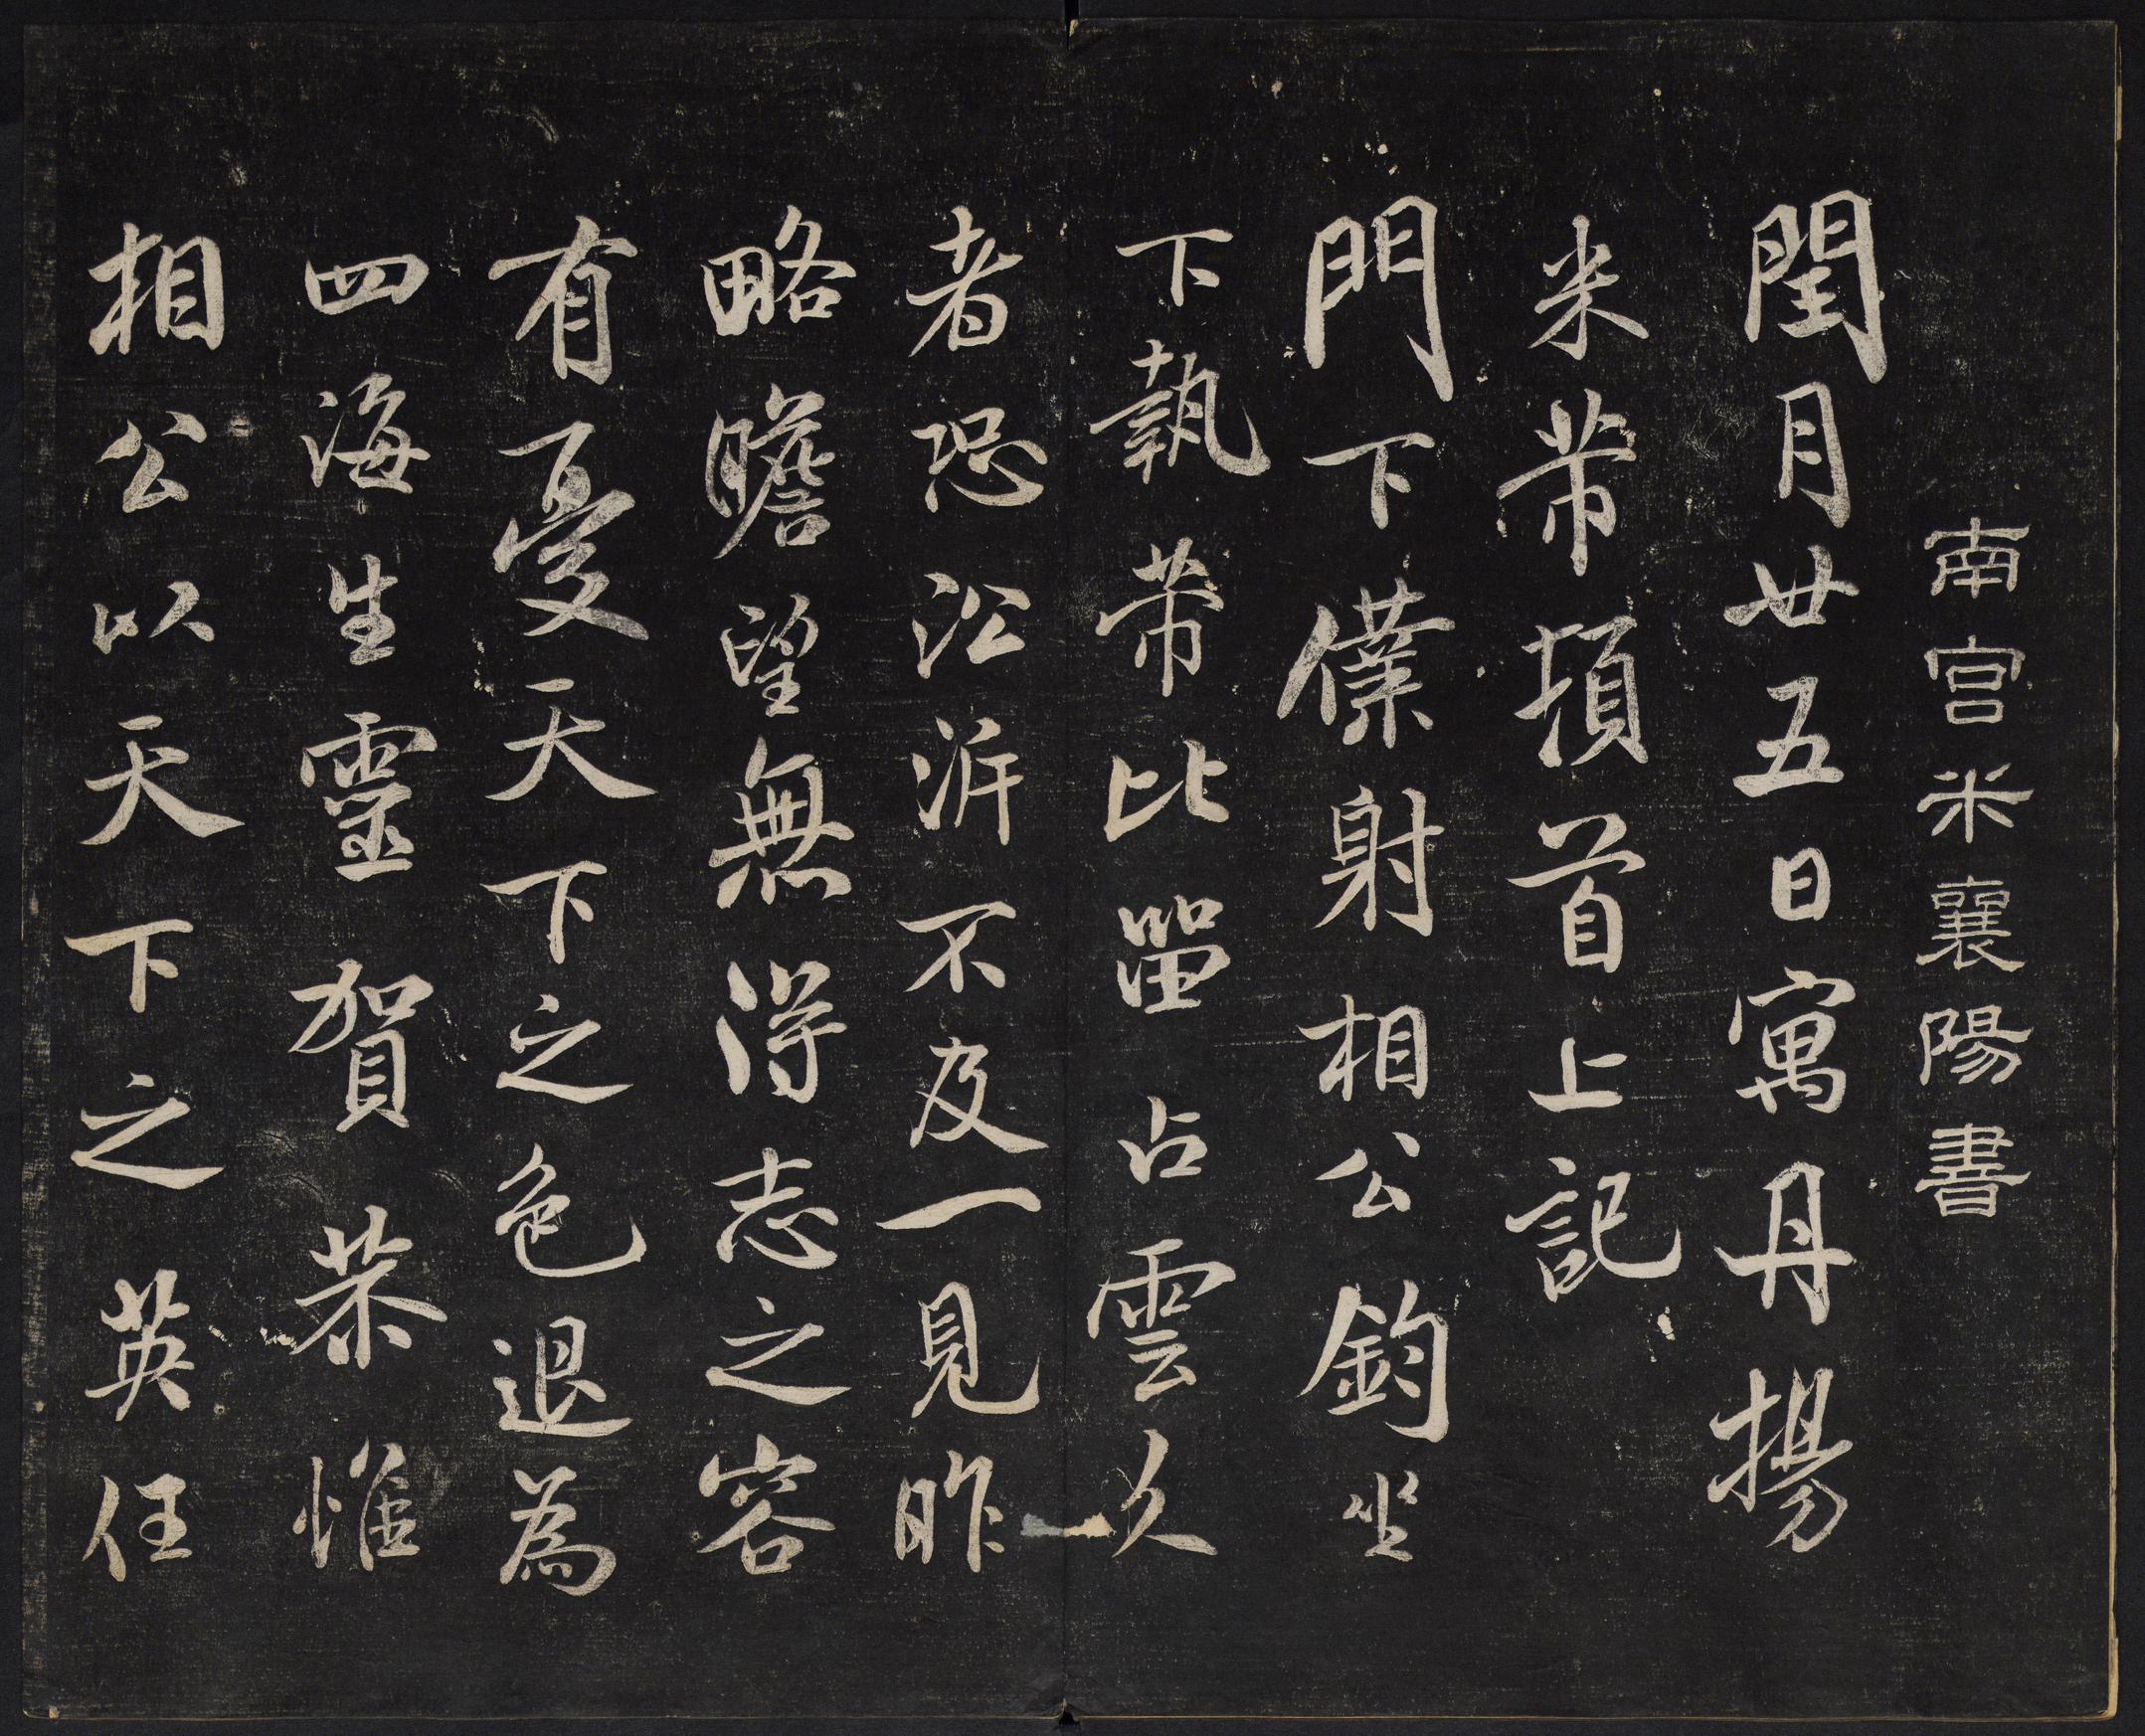 南宫米襄陽書
閏月廿五日寓丹揚
米芾頓首上記
門下僕射相公鈞坐
下執芾比畱占雲久
者恐㳂泝不及一見昨
略瞻望無得志之容
有憂天下之色退為
四海生靈賀恭惟
相公以天下之英任